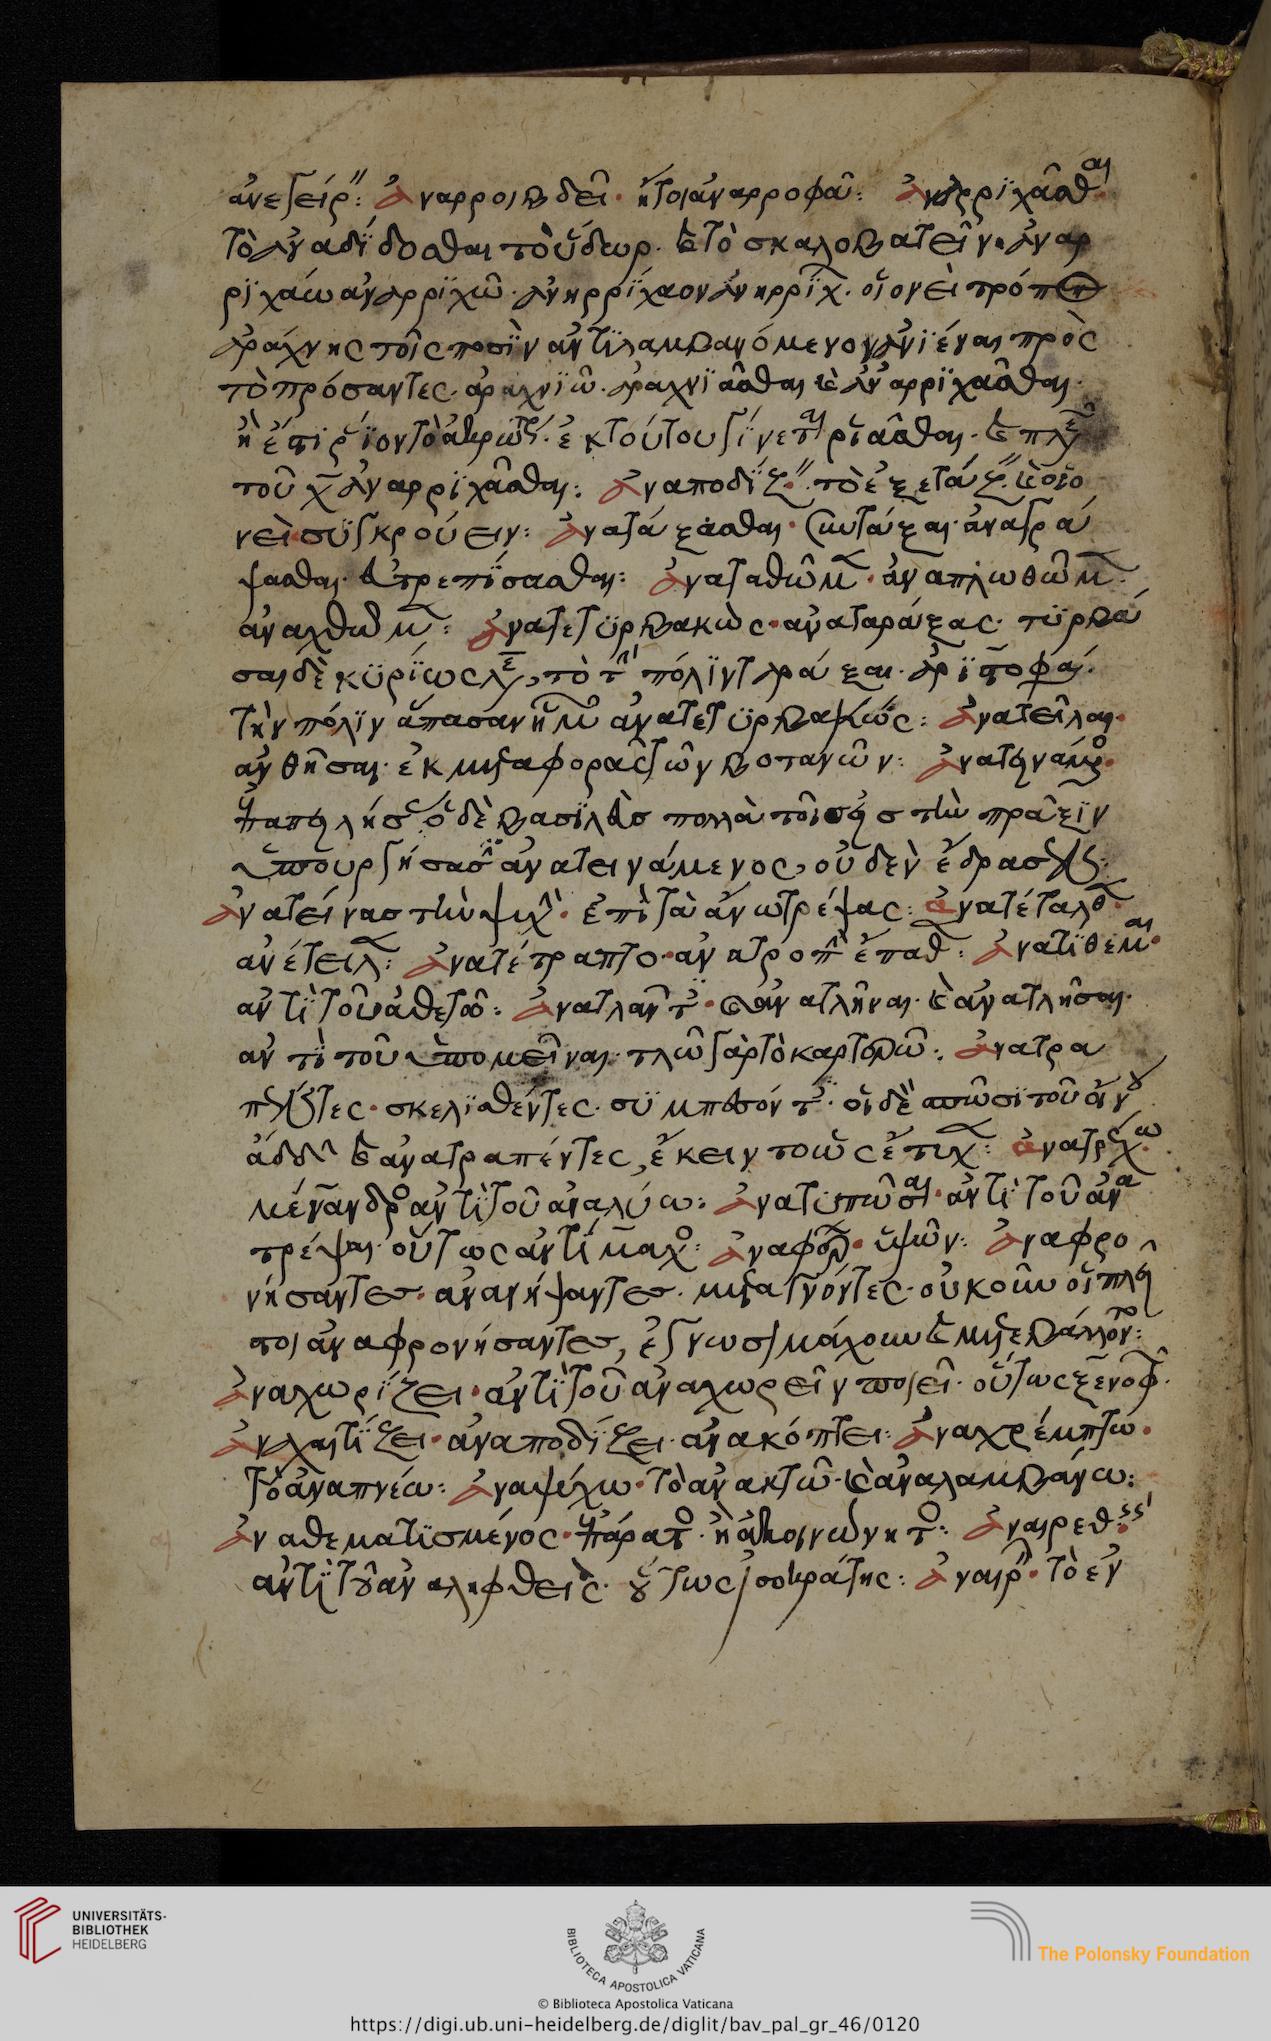 ἀνεγείρ· Ἀναρροιβδεῖ· ἤτοι ἀναρροφᾶ: Ἀναρριχᾶσθαι·
τὸ ἀναδίδοσθαι τὸ ὕδωρ. καὶ τὸ σκαλοβατεῖν. ἀναρ
ριχάω ἀναρριχῶ. ἀνηρρίχαον ἀνηρρίχ. οἱονεὶ τρόπον
ἀράχνης τοῖς ποσὶν ἀντιλαμβανόμενον ἀνιέναι πρὸς
τὸ πρόσαντες. ἀραχνιῶ. ἀραχνιᾶσθαι καὶ ἀναρριχᾶσθαι.
ἢ ἐπὶ ῥίον τὸ ἀκρωτ. ἐκ τούτου γίνεται ριᾶσθαι. καὶ πλε
τοῦ χ ἀναρριχᾶσθαι: Ἀναποδίζ· τὸ ἐξετάζ. καὶ οἷο
νεὶ συγκρούειν: Ἀνατάξασθαι· συντάξαι. ἀναγρά
ψασθαι. εὐτρεπίσασθαι: Ἀνασταθῶμ· ἀναπλωθῶμ.
ἀναλθωμ: Ἀνατετυρβακὼς· ἀναταράξας. τυρβά
σαι δὲ κυρίως λε, τὸ τ πόλιν ταράξαι. ἀριστοφά.
τὴν πόλιν ἅπασαν ἡμῶν ἀνατετυρβακώς: Ἀνατεῖλαι·
ἀνθῆσαι. ἐκ μεταφορᾶς τῶν βοτανῶν: Ἀνατεινάμο·
ἀπειλήσ ὁ δὲ βασιλεὺς πολλὰ τοῖς εἰς τὴν πρᾶξιν
ὑπουργήσασιν ἀνατεινάμενος, οὐδὲν ἔδρασεν:
Ἀνατείνας τὴν ψυχ. ἐπὶ τὰ ἄνω τρέψας: Ἀνατέταλθ·
ἀνέτειλ: Ἀνατέτραπτο· ἀνατροπὴν ἔπαθ: Ἀνατίθεμαι·
ἀντὶ τοῦ ἀθετῶ: Ἀνατλαντ· καὶ ἀνατλῆναι. καὶ ἀνατλῆσαι.
ἀντὶ τοῦ ὑπομεῖναι. τλῶ γὰρ τὸ καρτερῶ: Ἀνατρα
πέντες· σκελισθέντες. συμπεσόντ. οἱ δὲ ἀπῶσι τοῦ ἀν
ᾅδου καὶ ἀνατραπέντες, ἔκειντο ὡς ἔτυχ: Ἀνατρέχω·
μένανδρο ἀντὶ τοῦ ἀναλύω: Ἀνατυπῶσαι· ἀντὶ τοῦ ἀνα
τρέψαι. οὕτως ἀντίμαχο: Ἀναφορ· ὑψῶν: Ἀναφρο
νήσαντες· ἀνανήψαντες. μεταγνόντες. οὐκοῦν οἱ πλεῖ
στοι ἀναφρονήσαντες, ἔγνωσι μάχουν καὶ μετεβάλλοντο:
Ἀναχωρίζει· ἀντὶ τοῦ ἀναχωρεῖν ποιεῖ. οὕτως ξενοφ.
Ἀναχαιτίζει· ἀναποδίζει. ἀνακόπτει: Ἀναχρέμπτω·
τὸ ἀναπνέω: Ἀναψύχω· τὸ ἀνακτῶ. καὶ ἀναλαμβάνω:
Ἀναθεματισμένος· ἐπάρατο. ἢ ἀκοινώνητο: Ἀναιρεθεὶς·
ἀντὶ τοῦ ἀναληφθεὶς. οὕτως ἰσοκράτης: Ἀναιρ· τὸ ἐν
UNIVERSITÄTS-
BIBLIOTHEK
HEIDELBERG
BIBLIOTECA APOSTOLICA VATICANA
The Polonsky Foundation
© Biblioteca Apostolica Vaticana
https://digi.ub.uni-heidelberg.de/diglit/bav_pal_gr_46/0120